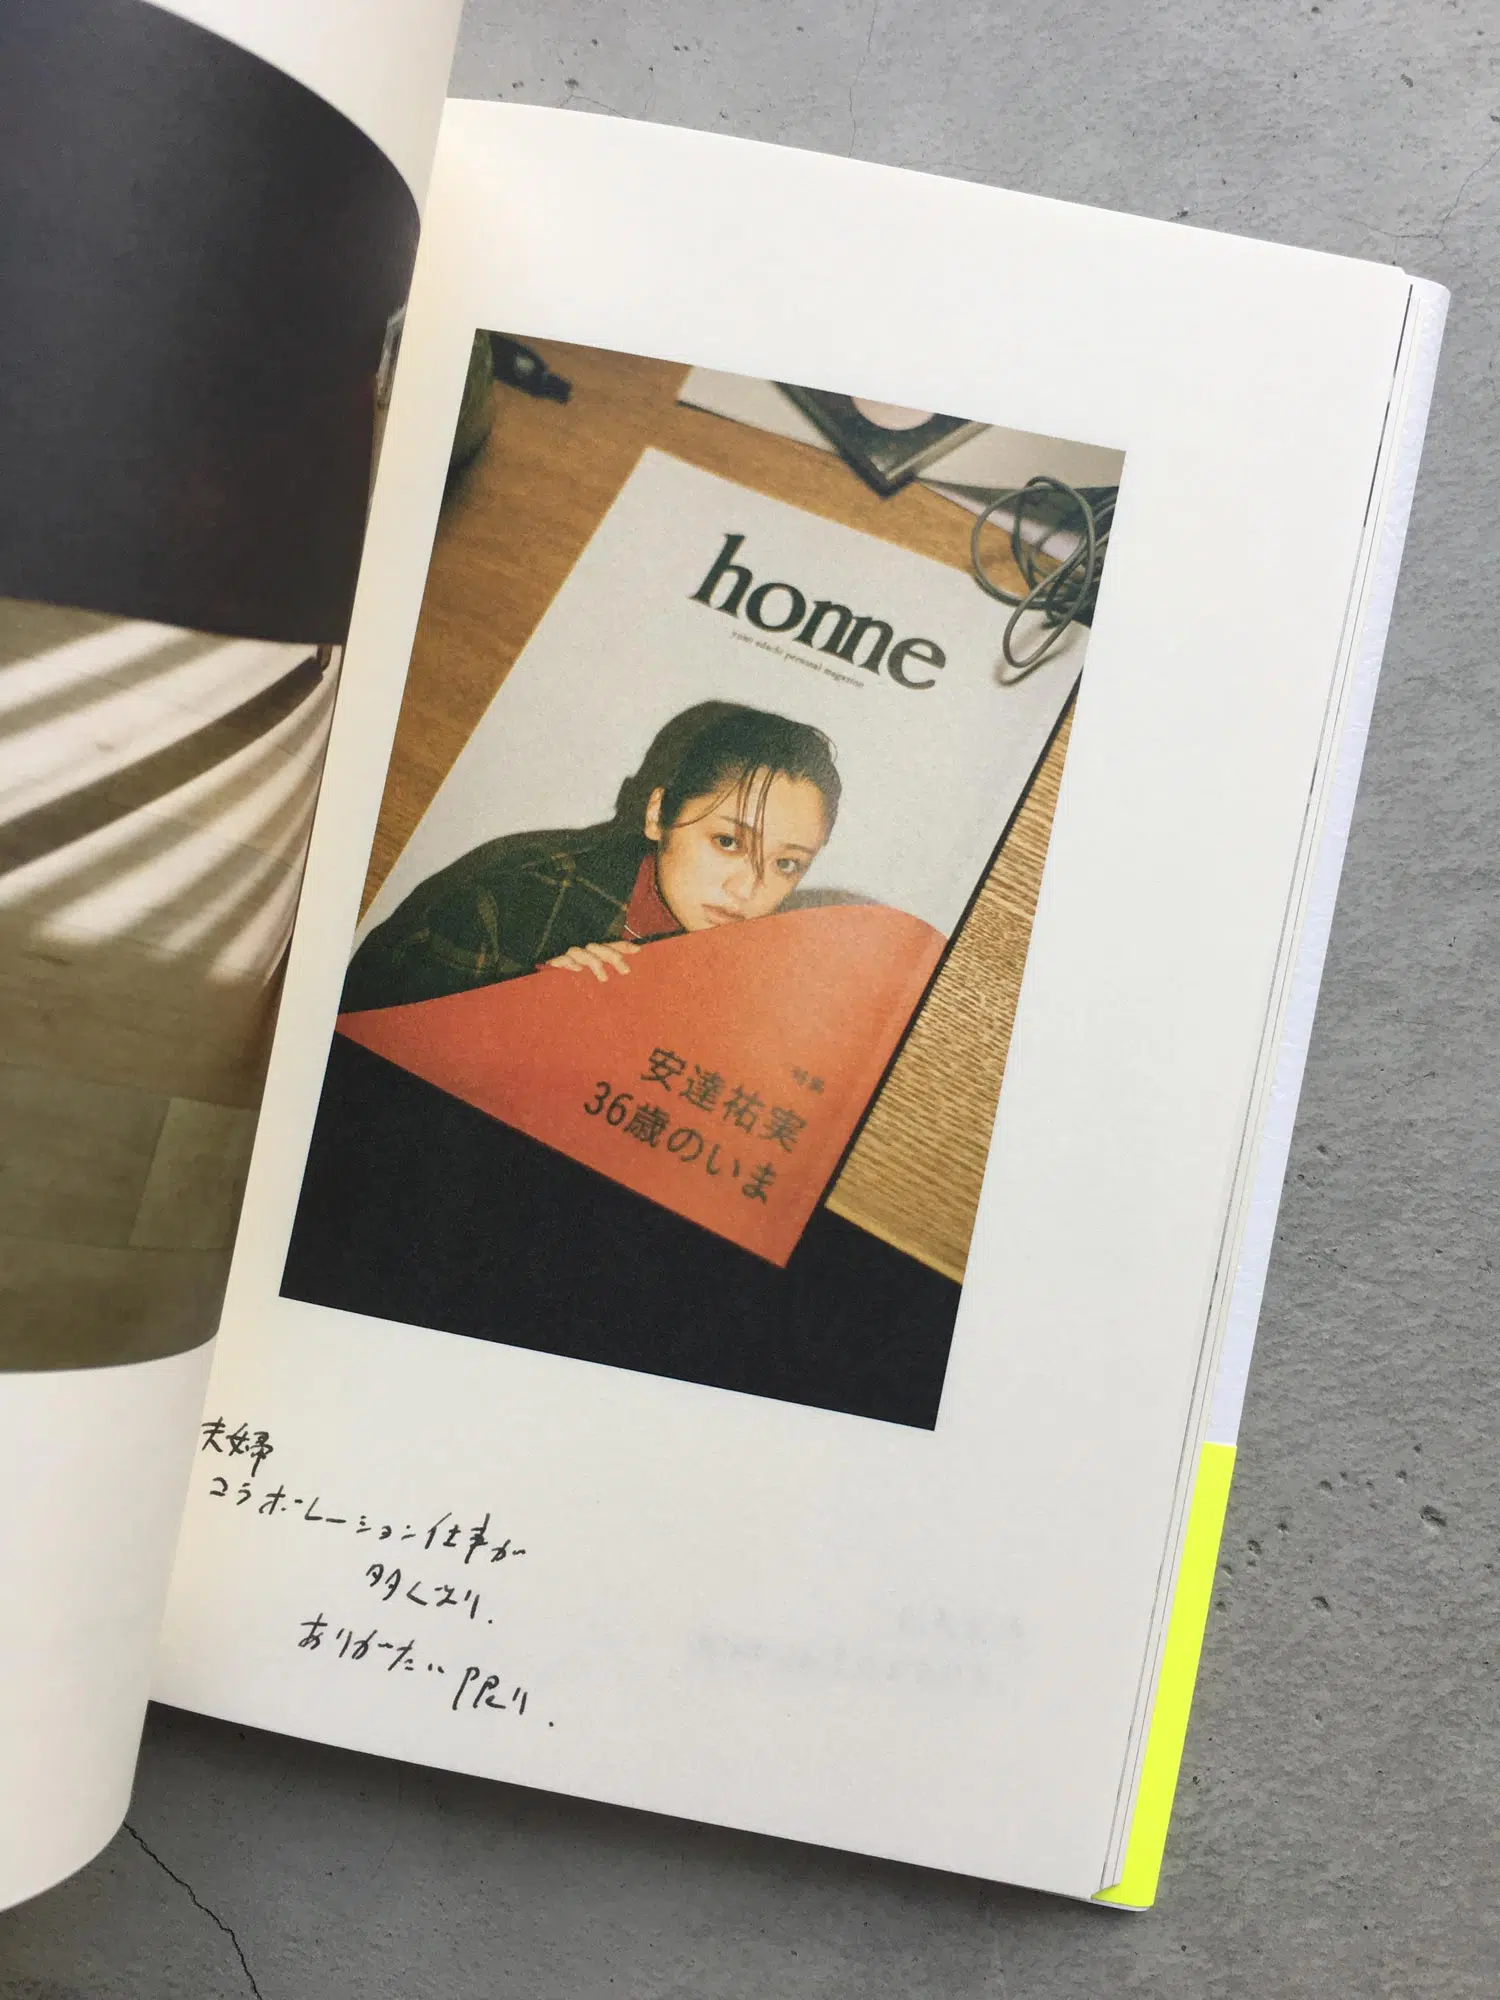 honne
yumi adachi personal magazine
特集
安達祐実
36歳のいま
夫婦
コラボレーション仕事が
多くなり.
ありがたい限り.